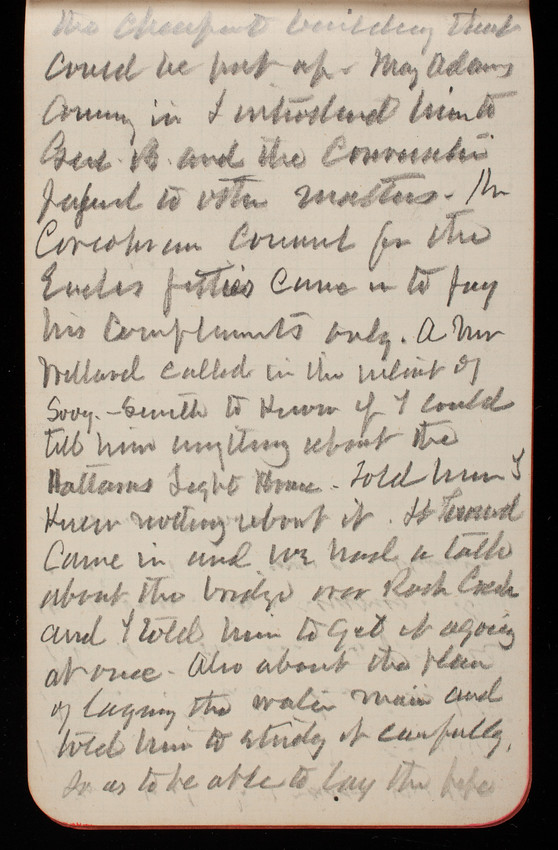 the cheapest building that
could be put up - Maj Adams
coming in I introduced him to
Genl. B. and the
to other matters - Mr
Corcoran Counsel for the
came in to pay
his compliments only. A Mr
Willard called in the interest of
Sooy-Smith to know if I could
tell him anything about the
Hatteras Light House. Told him I
knew nothing about it. Lt
came in and we had a talk
about the bridge over Rock Creek
and I told him to get it agoing
at once. Also about the plan
of laying the water main and
told him to study it carefully,
so as to be able to lay the pipe